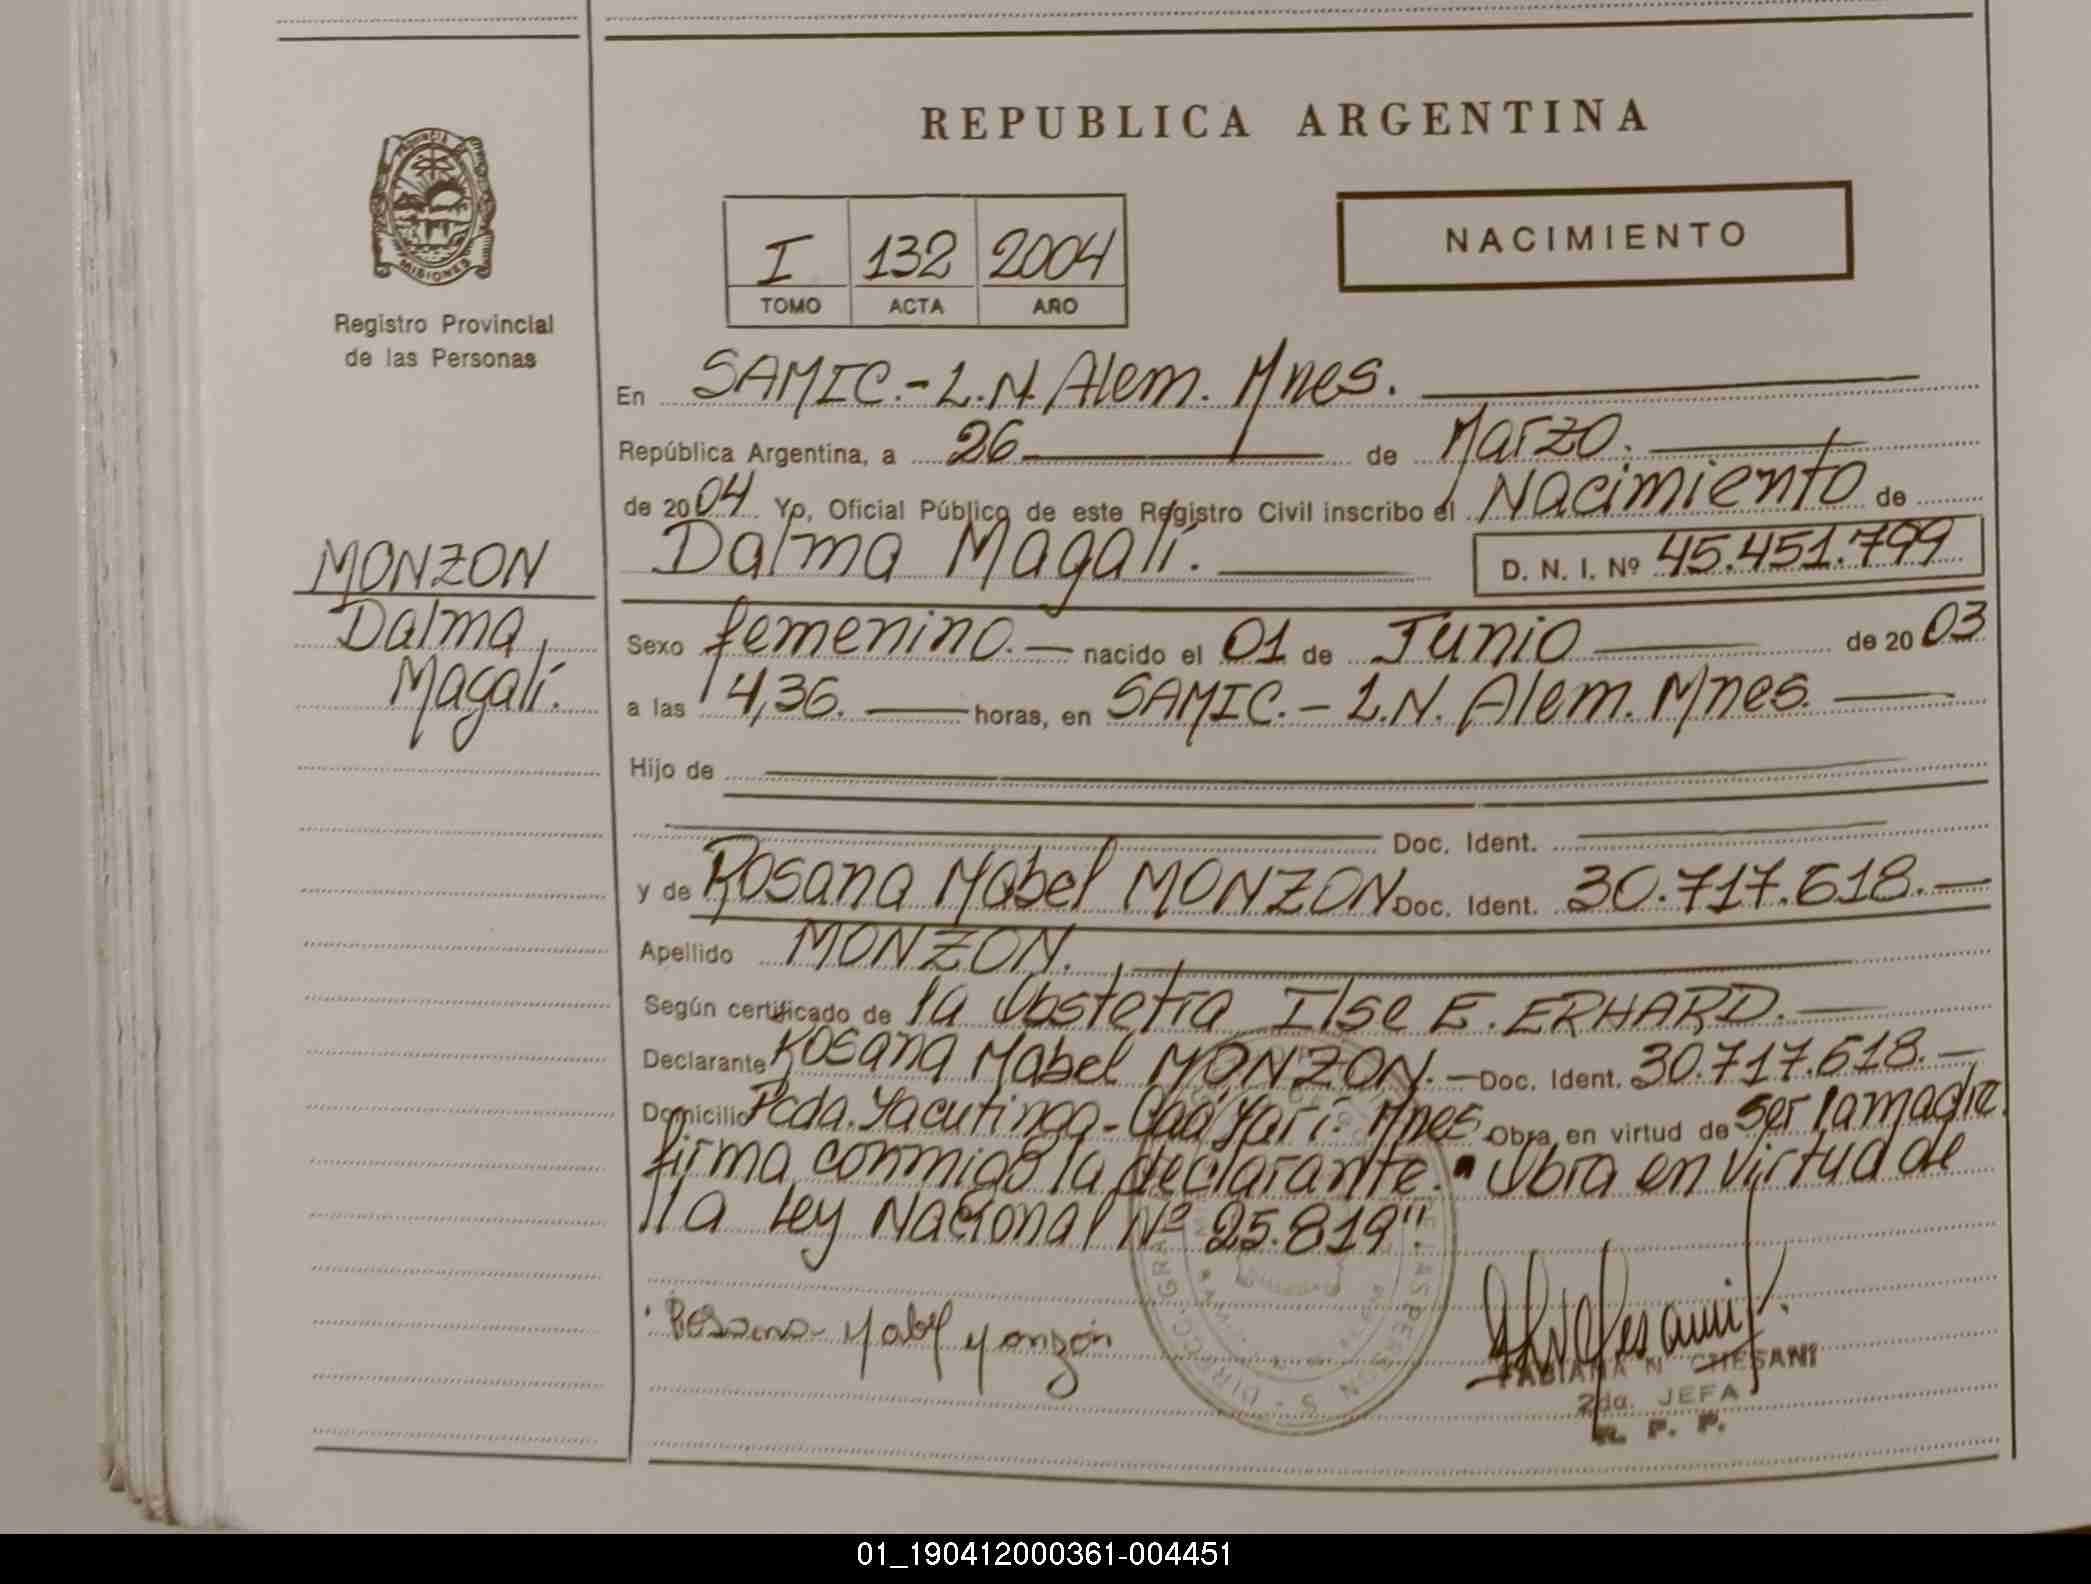 REPUBLICA ARGENTINA
PROVINCIA
MISIONES
Registro Provincial
de las Personas
I 132 2004
TOMO ACTA AÑO
NACIMIENTO
En SAMIC.- L.N. Alem. Mnes.
República Argentina, a 26 de Marzo.
de 2004 Yo, Oficial Público de este Registro Civil inscribo el Nacimiento de
Dalma Magalí. D. N. I. Nº 45.451.799
MONZON
Dalma
Magalí.
Sexo femenino.- nacido el 01 de Junio de 2003
a las 4,36. horas, en SAMIC.- L.N. Alem. Mnes.
Hijo de
Doc. Ident.
y de Rosana Mabel MONZON Doc. Ident. 30.717.618.-
Apellido MONZON.
Según certificado de la Obstetra Ilse E. ERHARD.
Declarante Rosana Mabel MONZON.- Doc. Ident. 30.717.618.-
Domicilio Pcda. Yacutinga - Caá Yarí. Mnes. Obra en virtud de ser la madre.
firma conmigo la declarante. " Obra en virtud de
//a Ley Nacional Nº 25.819".
Rosana Mabel Monzón
FABIANA N. CHESANI
2da. JEFA
R. P. P.
01_190412000361-004451